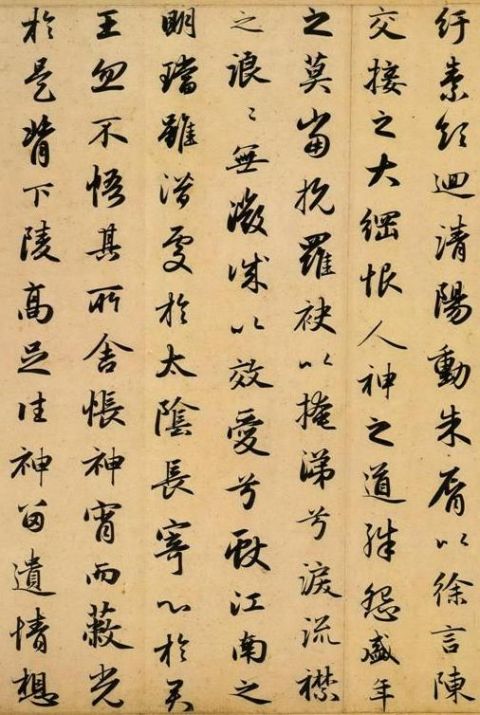 紆素領迴清陽動朱脣以徐言陳
交接之大綱恨人神之道殊怨盛年
之莫當抗羅袂以掩涕兮淚流襟
之浪〻無微誠以效愛兮献江南之
明璫雖潛處於太陰長寄心於君
王忽不悟其所舍悵神宵而蔽光
於是背下陵高足往神留遺情想